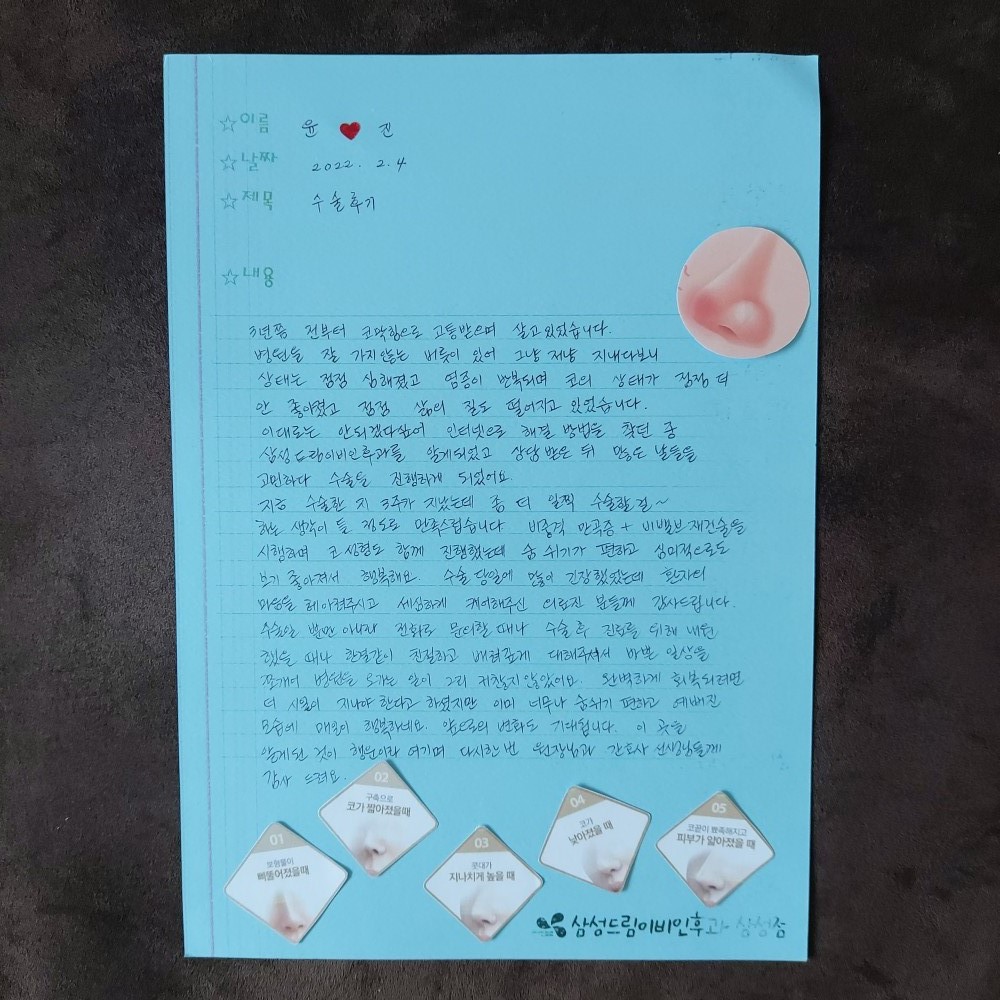 ☆이름 윤 ♥ 진
☆날짜 2022. 2. 4
☆제목 수술후기
☆내용
3년쯤 전부터 코막힘으로 고통받으며 살고있었습니다.
병원을 잘 가지않는 버릇이 있어 그냥저냥 지내다보니
상태는 점점 심해졌고 염증이 반복되며 코의 상태가 점점 더
안 좋아졌고 점점 삶의 질도 떨어지고 있었습니다.
이대로는 안되겠다싶어 인터넷으로 해결 방법을 찾던 중
삼성드림이비인후과를 알게되었고 상담 받은 뒤 많은 날들을
고민하다 수술을 진행하게 되었어요.
지금 수술한 지 3주가 지났는데 좀 더 일찍 수술할걸~
하는 생각이 들 정도로 만족스럽습니다. 비중격 만곡증 + 비밸브재건술을
시행하며 코성형도 함께 진행했는데 숨 쉬기가 편하고 심미적으로도
보기 좋아져서 행복해요. 수술 당일에 많이 긴장했었는데 환자의
마음을 헤아려주시고 세심하게 케어해주신 의료진 분들께 감사드립니다.
수술일 뿐만 아니라 전화로 문의할 때나 수술 후 진료를 위해 내원
했을 때나 한결같이 친절하고 배려깊게 대해주셔서 바쁜 일상을
쪼개어 병원을 오가는 일이 그리 귀찮지않았어요. 완벽하게 회복되려면
더 시일이 지나야 한다고 하셨지만 이미 너무나 숨쉬기 편하고 예뻐진
모습에 매일이 행복하네요. 앞으로의 변화도 기대됩니다. 이 곳을
알게된 것이 행운이라 여기며 다시한번 원장님과 간호사 선생님들께
감사 드려요.
01 보형물이
삐뚤어졌을때
02 구축으로
코가 짧아졌을때
03 콧대가
지나치게 높을 때
04 코가
낮아졌을 때
05 코끝이 뾰족해지고
피부가 얇아졌을 때
삼성드림이비인후과 삼성점